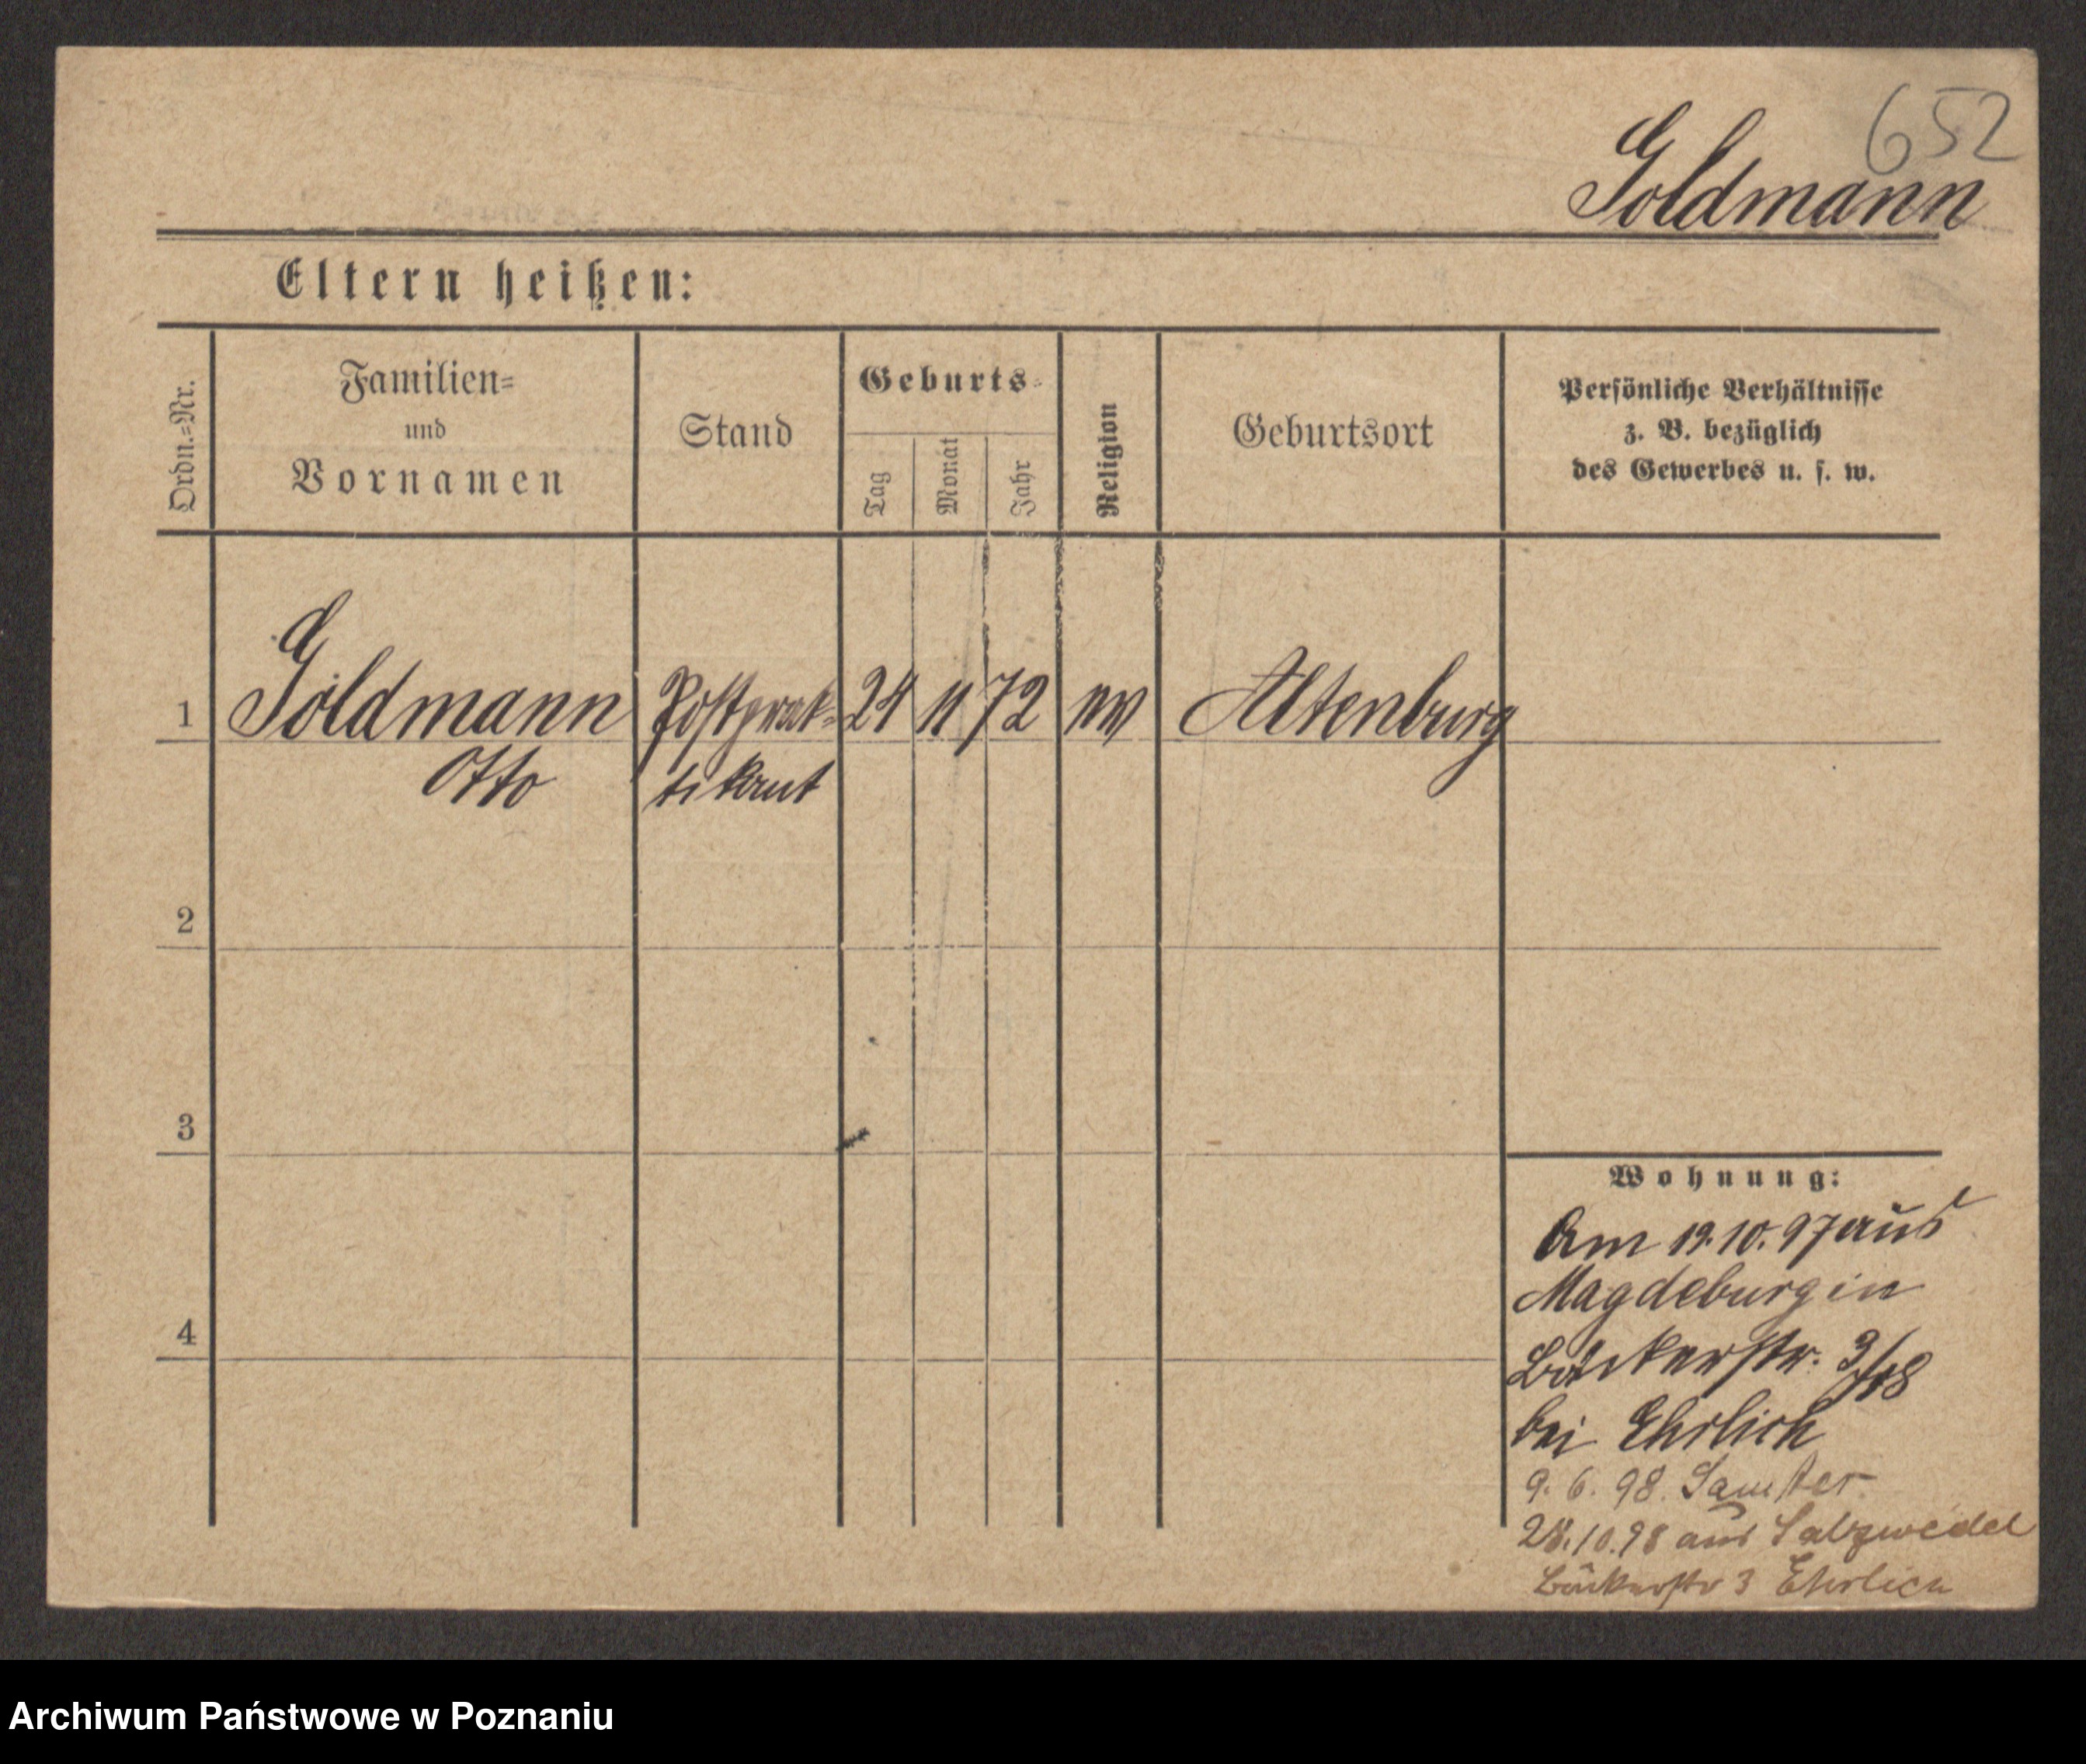 652
Goldmann
Eltern heißen:
Ordn.=Nr.
Familien=
und
Vornamen
Stand
Geburts=
Tag
Monat
Jahr
Religion
Geburtsort
Persönliche Verhältnisse
z. B. bezüglich
des Gewerbes u. s. w.
1 Goldmann Postprak= 24 11 72 ev Altenburg
Otto tikant
2
3
4
Wohnung:
Am 19.10.97 aus
Magdeburg in
Bäckerstr. 3/18
bei Ehrlich
9. 6. 98. Samter
28.10.98 aus Salzwedel
Bäckerstr 3 Ehrlich
Archiwum Państwowe w Poznaniu